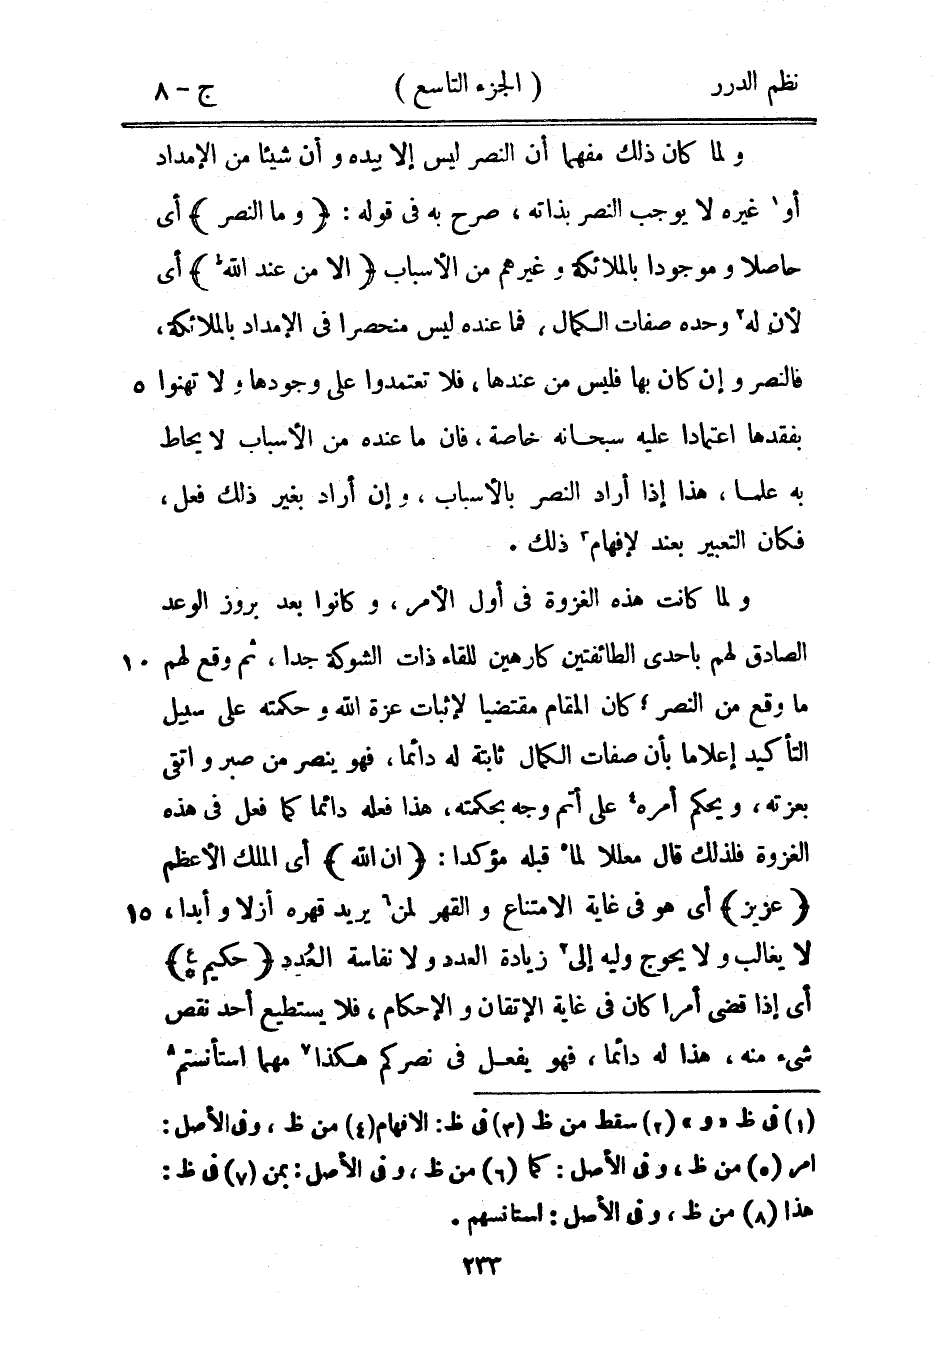 نظم الدرر ( الجزء التاسع ) ج - ٨
و لما كان ذلك مفهما أن النصر ليس إلا بيده و أن شيئا من الإمداد
أو١ غيره لا يوجب النصر بذاته ، صرح به فى قوله : ﴿ و ما النصر ﴾ أى
حاصلا و موجودا بالملائكة و غيرهم من الأسباب ﴿ الا من عند الله ط ﴾ أى
لأن له٢ وحده صفات الكمال ، فما عنده ليس منحصرا فى الإمداد بالملائكة ،
فالنصر و إن كان بها فليس من عندها ، فلا تعتمدوا على وجودها و لا تهنوا ٥
بفقدها اعتمادا عليه سبحـانه خاصة ، فان ما عنده من الأسباب لا يحاط
به علمـا ، هذا إذا أراد النصر بالأسباب ، و إن أراد بغير ذلك فعل ،
فـكان التعبير بعند لإفهام٣ ذلك .
و لما كانت هذه الغزوة فى أول الأمر ، و كانوا بعد بروز الوعد
الصادق لهم باحدى الطائفتين كارهين للقاء ذات الشوكة جدا ، ثم وقع لهم ١٠
ما وقع من النصر ، كان المقام مقتضيا لإثبات عزة الله و حكمته على سبيل
التأكيد إعلاما بأن صفات الكمال ثابتة له دائما ، فهو ينصر من صبر و اتقى
بعزته ، و يحكم أمره٤ على أتم وجه بحكمته ، هذا فعله دائما كما فعل فى هذه
الغزوة فلذلك قال معللا لما٥ قبله مؤكدا : ﴿ ان الله ﴾ أى الملك الأعظم
﴿ عزيز ﴾ أى هو فى غاية الامتناع و القهر لمن٦ يريد قهره أزلا و أبدا ، ١٥
لا يغالب و لا يحوج وليه إلى٢ زيادة العدد و لا نفاسة العُدد ﴿ حكيم ع ﴾
أى إذا قضى أمرا كان فى غاية الإتقان و الإحكام ، فلا يستطيع أحد نقص
شىء منه ، هذا له دائما ، فهو يفعـل فى نصركم هـكذا٧ مهما استأنستم٨
(١) فى ظ « و » (٢) سقط من ظ (٣) فى ظ : الافهام (٤) من ظ ، وفى الأصل :
امر (٥) من ظ ، و فى الأصل : كما (٦) من ظ ، و فى الأصل : بمن (٧) فى ظ :
هذا (٨) من ظ ، و فى الأصل : استانسهم .
٢٣٣